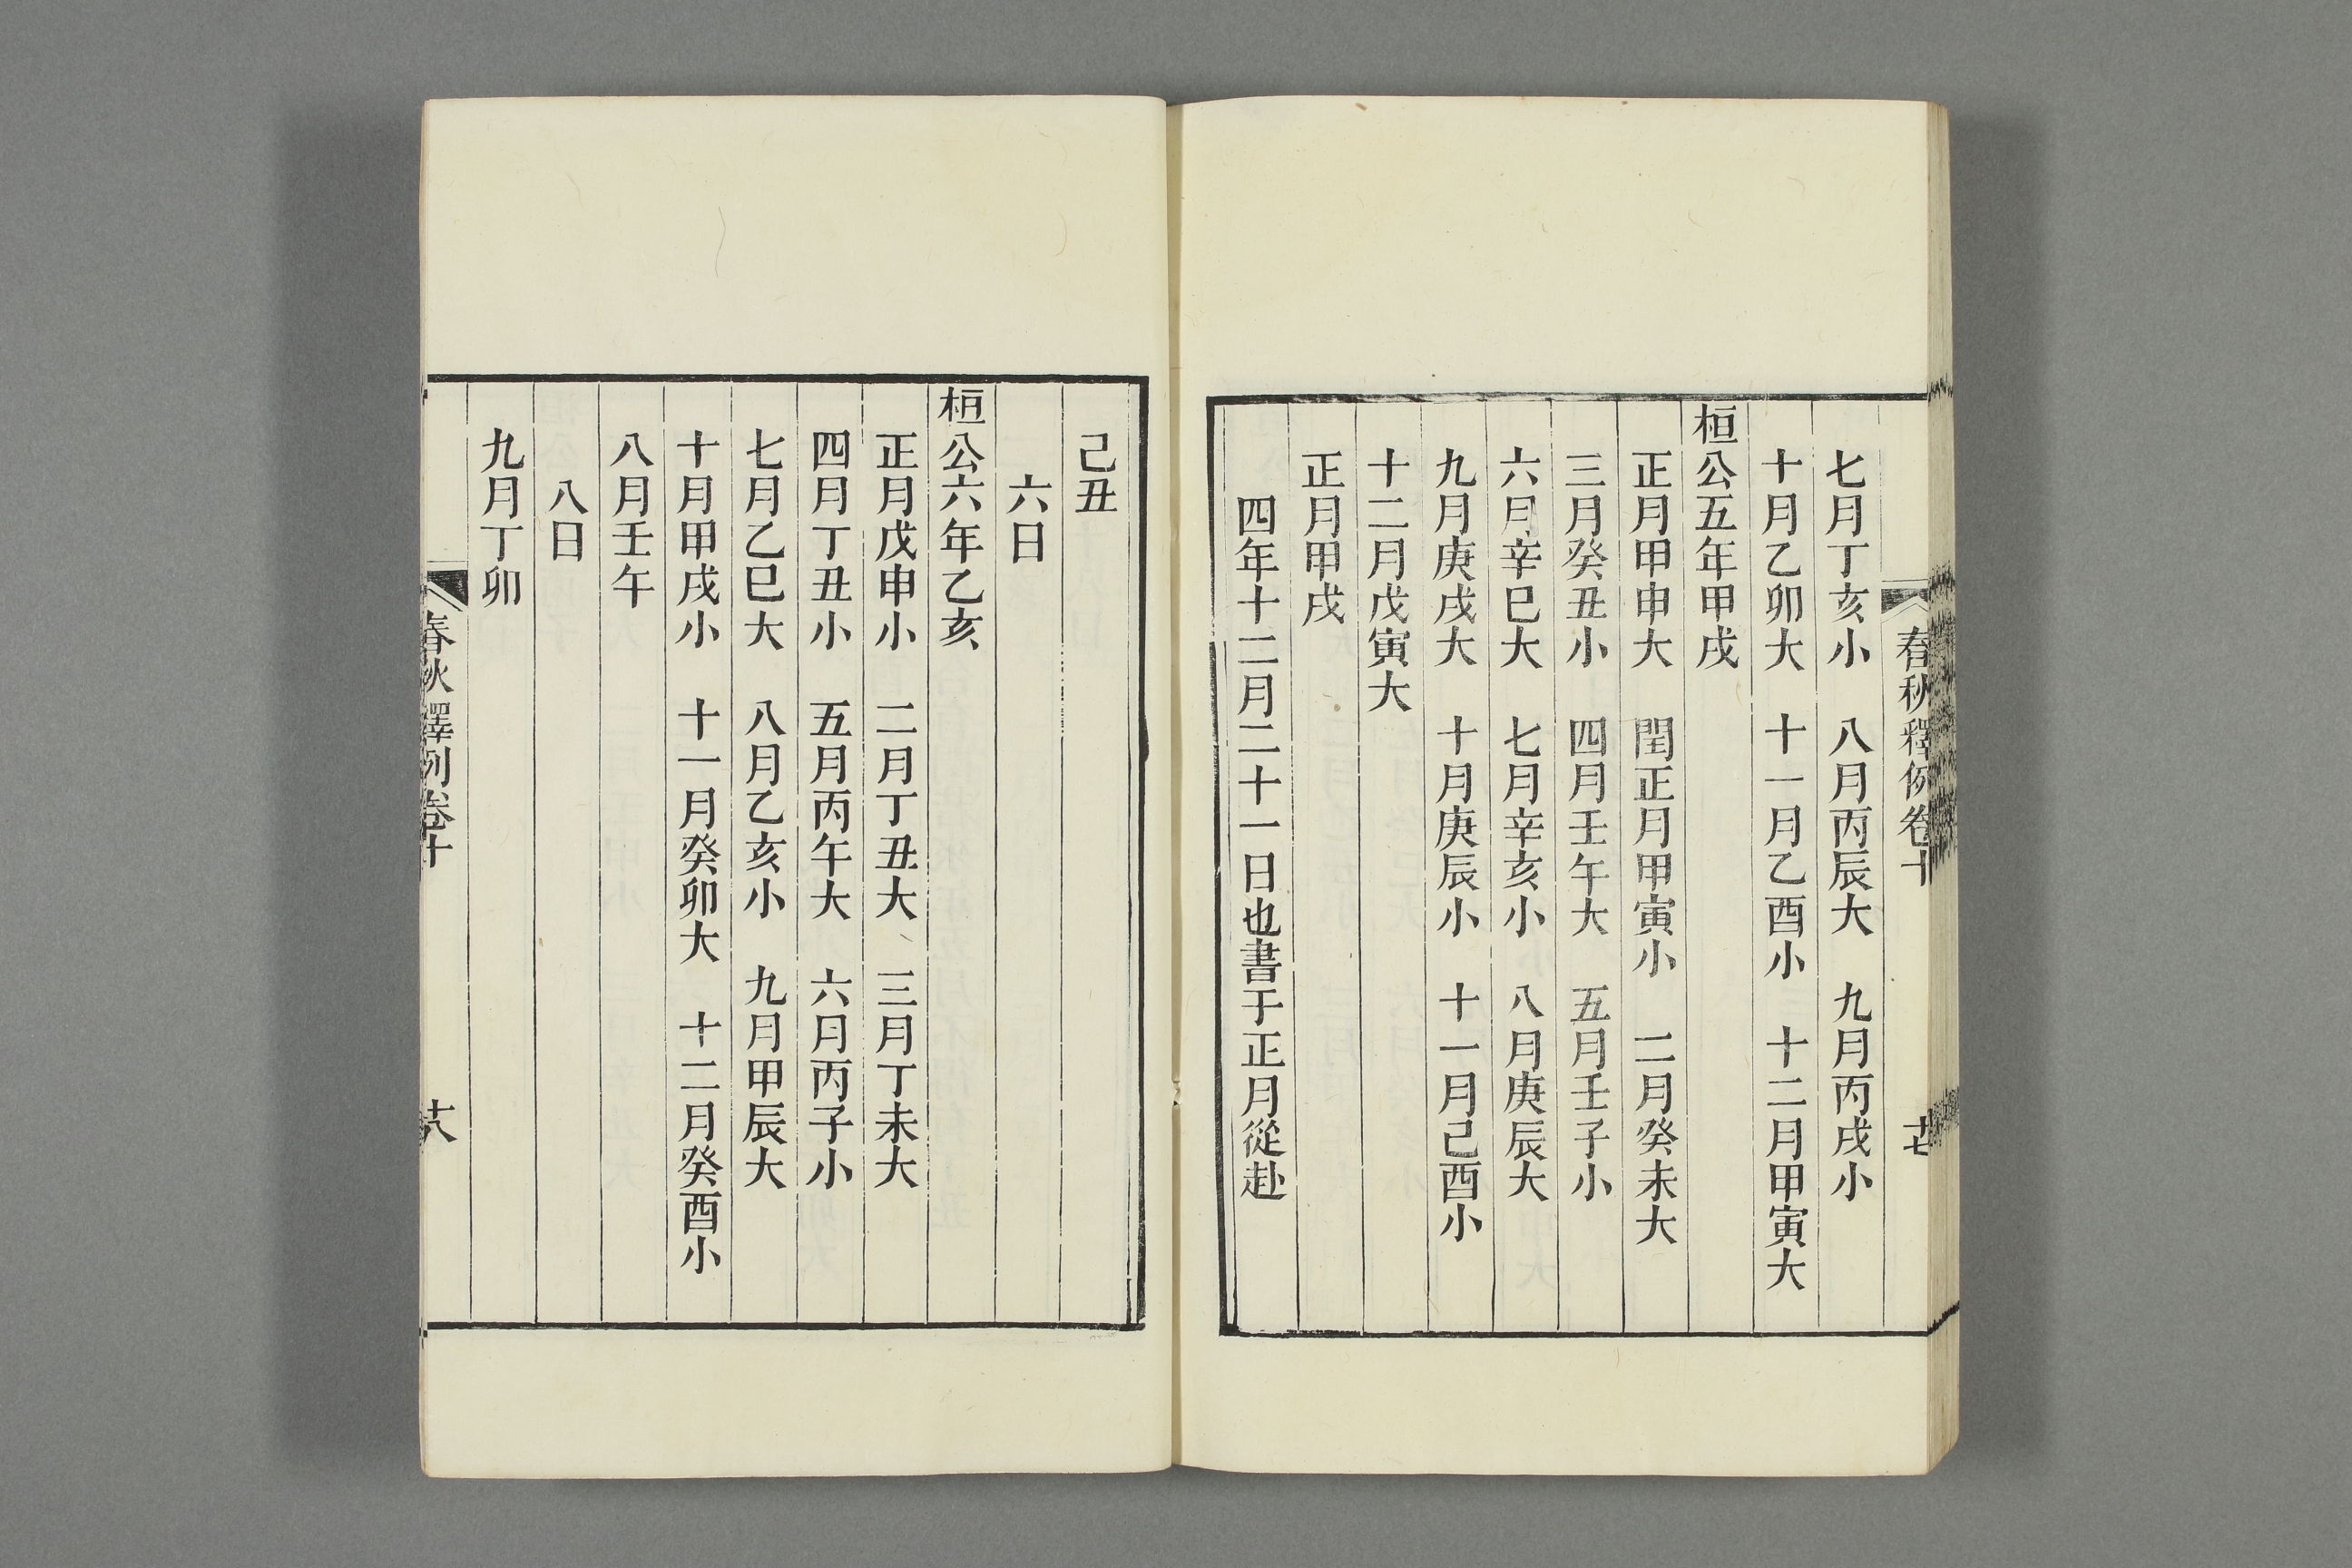 春秋釋例卷十
十七
七月丁亥小　八月丙辰大　九月丙戌小
十月乙卯大　十一月乙酉小　十二月甲寅大
桓公五年甲戌
正月甲申大　閏正月甲寅小　二月癸未大
三月癸丑小　四月壬午大　五月壬子小
六月辛巳大　七月辛亥小　八月庚辰大
九月庚戌大　十月庚辰小　十一月己酉小
十二月戊寅大
正月甲戌
四年十二月二十一日也書于正月從赴
己丑
六日
桓公六年乙亥
正月戊申小　二月丁丑大　三月丁未大
四月丁丑小　五月丙午大　六月丙子小
七月乙巳大　八月乙亥小　九月甲辰大
十月甲戌小　十一月癸卯大　十二月癸酉小
八月壬午
八日
九月丁卯
春秋釋例卷十
十八